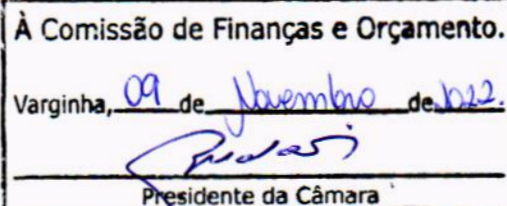 À Comissão de Finanças e Orçamento.
Varginha, 09 de Novembro de 2022.
Presidente da Câmara